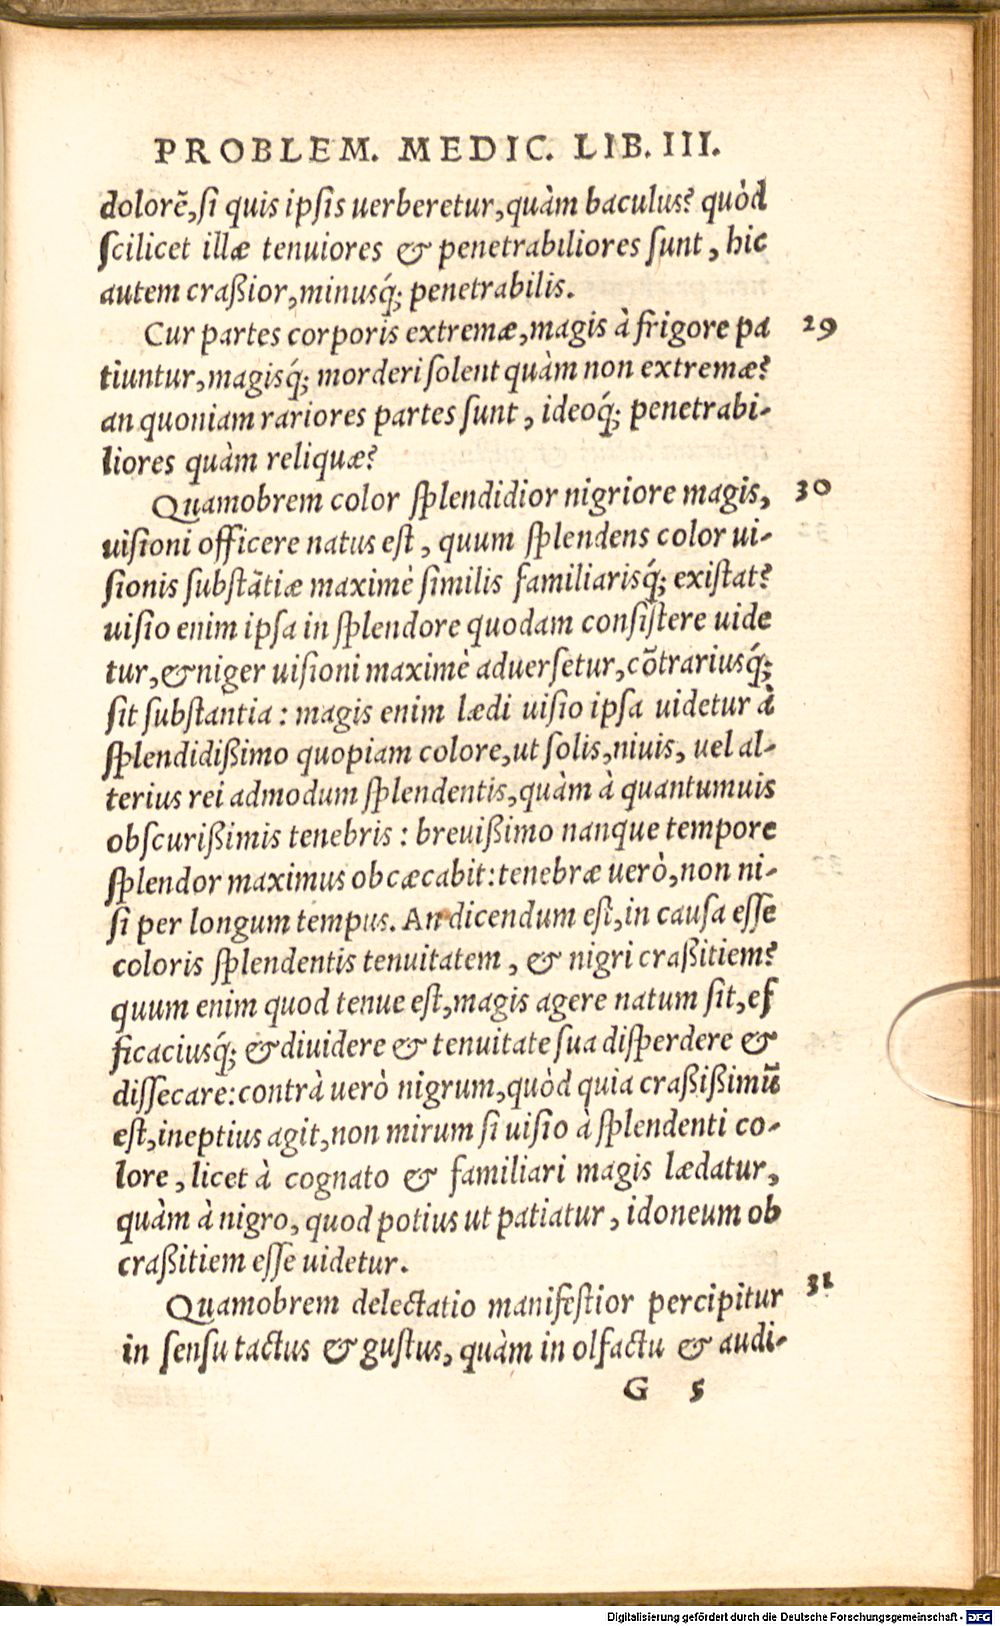 PROBLEM. MEDIC. LIB. III.
dolorẽ, ſi quis ipſis uerberetur, quàm baculus? quòd
ſcilicet illæ tenuiores & penetrabiliores ſunt, hic
autem craßior, minusq́; penetrabilis.
Cur partes corporis extremæ, magis à frigore pa 29
tiuntur, magisq́; morderi ſolent quàm non extremæ?
an quoniam rariores partes ſunt, ideoq́; penetrabi-
liores quàm reliquæ?
Quamobrem color ſplendidior nigriore magis, 30
uiſioni officere natus eſt, quum ſplendens color ui-
ſionis ſubſtãtiæ maximè ſimilis familiarisq́; exiſtat?
uiſio enim ipſa in ſplendore quodam conſiſtere uide
tur, & niger uiſioni maximè aduerſetur, cõtrariusq́;
ſit ſubſtantia: magis enim lædi uiſio ipſa uidetur à
ſplendidißimo quopiam colore, ut ſolis, niuis, uel al-
terius rei admodum ſplendentis, quàm à quantumuis
obſcurißimis tenebris: breuißimo nanque tempore
ſplendor maximus obcæcabit: tenebræ uerò, non ni-
ſi per longum tempus. An dicendum eſt, in cauſa eſſe
coloris ſplendentis tenuitatem, & nigri craßitiem?
quum enim quod tenue eſt, magis agere natum ſit, ef
ficaciusq́; & diuidere & tenuitate ſua diſperdere &
diſſecare: contrà uerò nigrum, quòd quia craßißimũ
eſt, ineptius agit, non mirum ſi uiſio à ſplendenti co-
lore, licet à cognato & familiari magis lædatur,
quàm à nigro, quod potius ut patiatur, idoneum ob
craßitiem eſſe uidetur.
Quamobrem delectatio manifeſtior percipitur 31
in ſenſu tactus & guſtus, quàm in olfactu & audi-
G 5
Digitalisierung gefördert durch die Deutsche Forschungsgemeinschaft - DFG